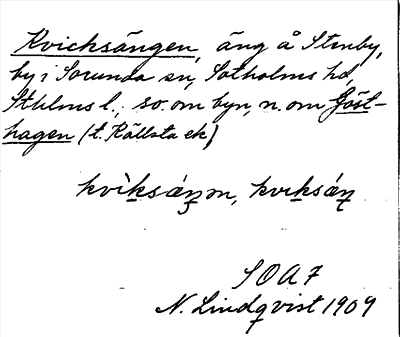 Kvicksängen, äng å Stenby,
by i Sorunda sn, Sotholms hd,
Sthlms l., so. om byn, n. om Göst-
hagen (t. Källsta ek)
kvìksáŋən, kvıksáŋ
SOA 7
N. Lindqvist 1909